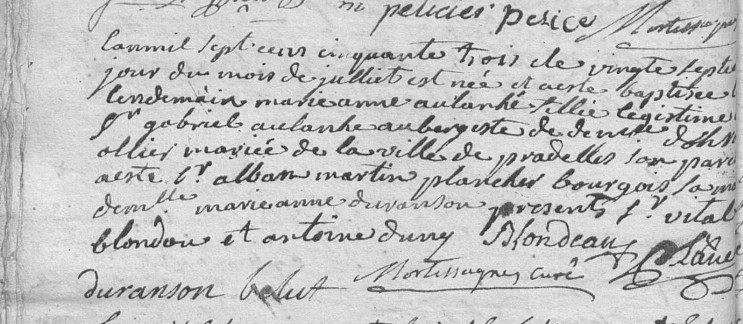 pelicier perice Mortessagnes
Lanmil sept cens cinquante trois ele vingte septe
jour du mois de julliet est née et aeste baptisée
lendemain marie anne aulanhe fillie legistime
Sr gabriel aulanhe aubergeste de
ollier mariée de la ville de pradelles son para
aeste Sr alban martin plancher bourgois sa ma
demlle marie anne duranson presents Sr vital
blondau et antoine duny Blondeau
duranson belut Mortessagnes curé